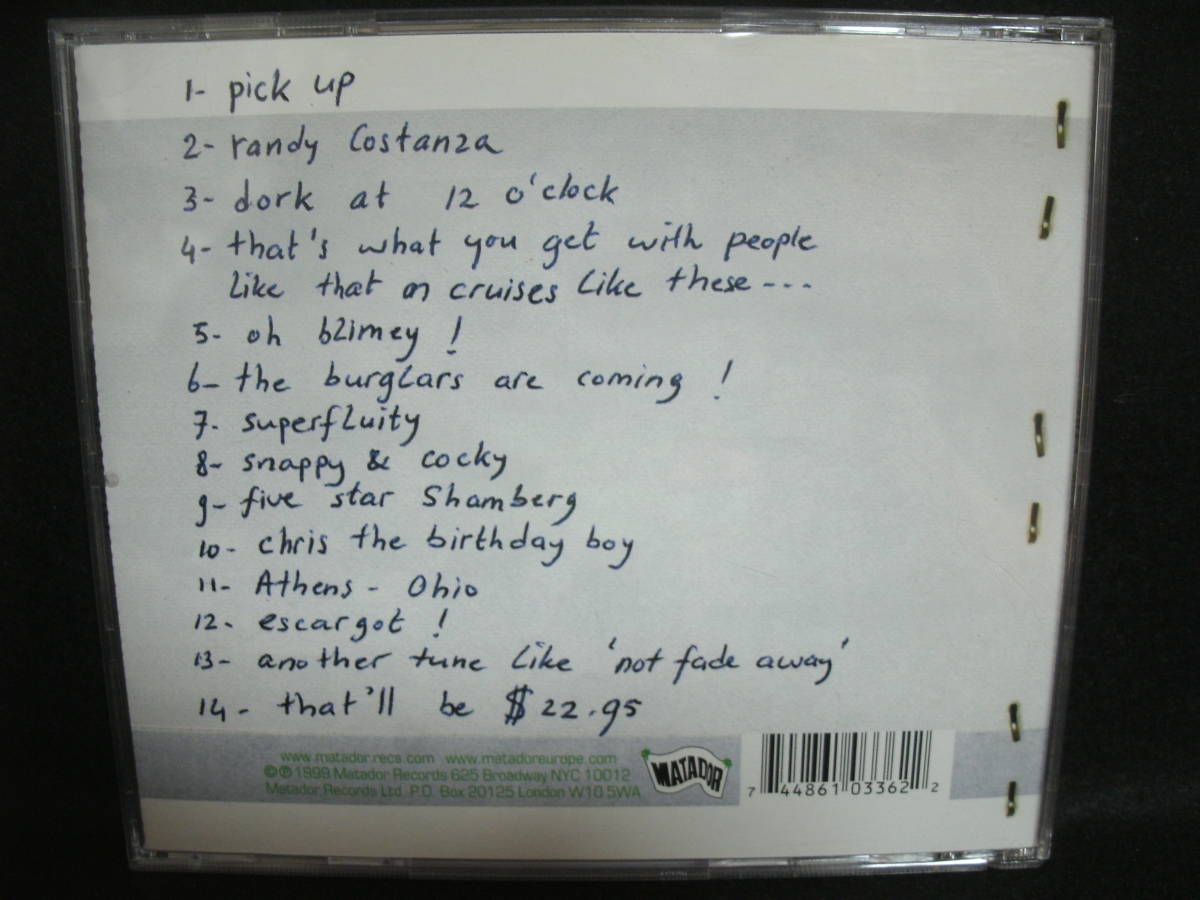 1- pick up
2- randy Costanza
3- dork at 12 o'clock
4- that's what you get with people
like that on cruises like these---
5- oh blimey !
6- the burglars are coming !
7. superfluity
8- snappy & cocky
9- five star Shamberg
10- chris the birthday boy
11- Athens - Ohio
12- escargot !
13- another tune like 'not fade away'
14- that'll be $22.95
www.matador.recs.com www.matadoreurope.com
©℗1999 Matador Records 625 Broadway NYC 10012
Matador Records Ltd P.O. Box 20125 London W10 5WA
MATADOR
7 44861 03362 2